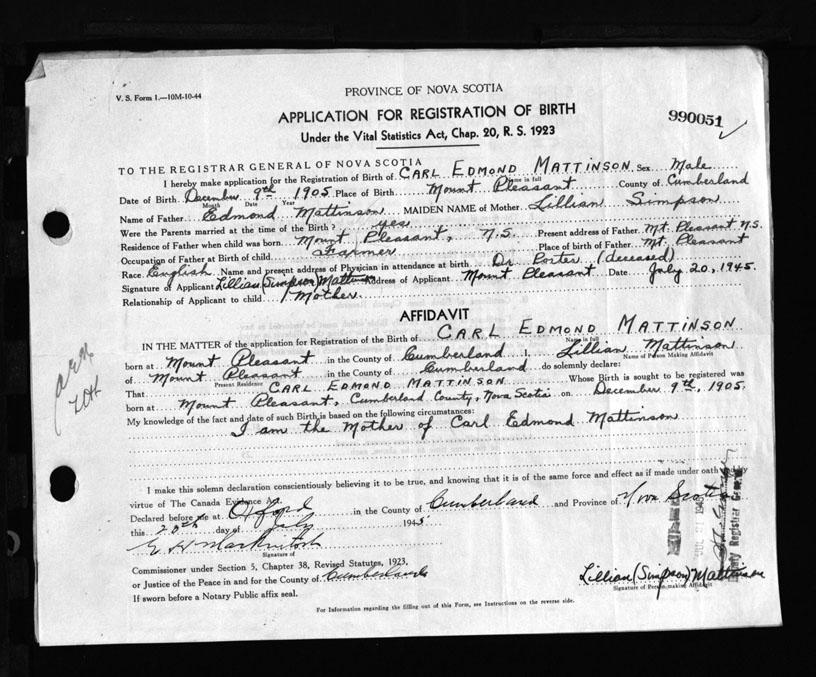 V. S. Form 1.—10M-10-44
PROVINCE OF NOVA SCOTIA
APPLICATION FOR REGISTRATION OF BIRTH
Under the Vital Statistics Act, Chap. 20, R. S. 1923
990051 ✓
TO THE REGISTRAR GENERAL OF NOVA SCOTIA
I hereby make application for the Registration of Birth of CARL EDMOND MATTINSON Sex Male
Name in full
Date of Birth December 9th 1905 Place of Birth Mount Pleasant County of Cumberland
Month Date Year
Name of Father Edmond Mattinson MAIDEN NAME of Mother Lillian Simpson
Were the Parents married at the time of the Birth? yes
Residence of Father when child was born Mount Pleasant, N.S. Present address of Father Mt. Pleasant N.S.
Occupation of Father at Birth of child Farmer Place of birth of Father Mt. Pleasant
Race English Name and present address of Physician in attendance at birth Dr Porter (deceased)
Signature of Applicant Lillian (Simpson) Mattinson Address of Applicant Mount Pleasant Date July 20, 1945.
Relationship of Applicant to child Mother.
AFFIDAVIT
IN THE MATTER of the application for Registration of the Birth of CARL EDMOND MATTINSON
Name in full
born at Mount Pleasant in the County of Cumberland I, Lillian Mattinson
Name of Person Making Affidavit
of Mount Pleasant in the County of Cumberland do solemnly declare:
Present Residence
That CARL EDMOND MATTINSON Whose Birth is sought to be registered was
born at Mount Pleasant, Cumberland County, Nova Scotia on December 9th, 1905.
My knowledge of the fact and date of such Birth is based on the following circumstances:
I am the Mother of Carl Edmond Mattinson
I make this solemn declaration conscientiously believing it to be true, and knowing that it is of the same force and effect as if made under oath and by
virtue of The Canada Evidence Act.
Declared before me at Oxford in the County of Cumberland and Province of Nova Scotia
this 20th day of July 1945
E H Mackintosh
Signature of
Commissioner under Section 5, Chapter 38, Revised Statutes, 1923,
or Justice of the Peace in and for the County of Cumberland
If sworn before a Notary Public affix seal.
Lillian (Simpson) Mattinson
Signature of Person making Affidavit
Deputy Registrar General
For Information regarding the filling out of this Form, see Instructions on the reverse side.